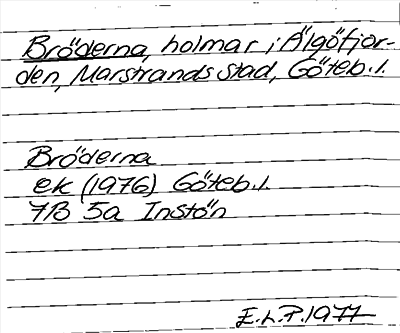 Bröderna, holmar i Älgöfjor-
den, Marstrands stad, Göteb.l.
Bröderna
ek (1976) Göteb.l.
7B 5a Instön
E.L.P. 1977